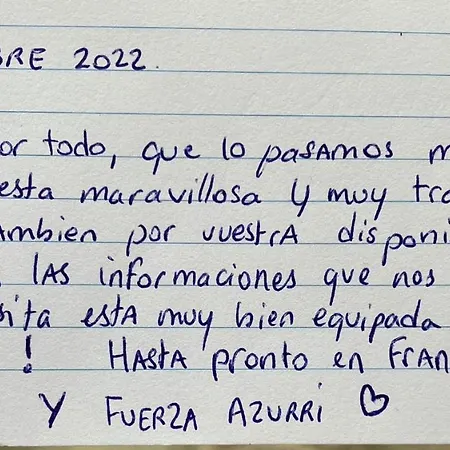 BRE 2022.
or todo, que lo pasamos m
esta maravillosa y muy tra
ambien por vuestra disponi
las informaciones que nos
sita esta muy bien equipada
! Hasta pronto en Fran
Y FUERZA AZURRI ♡